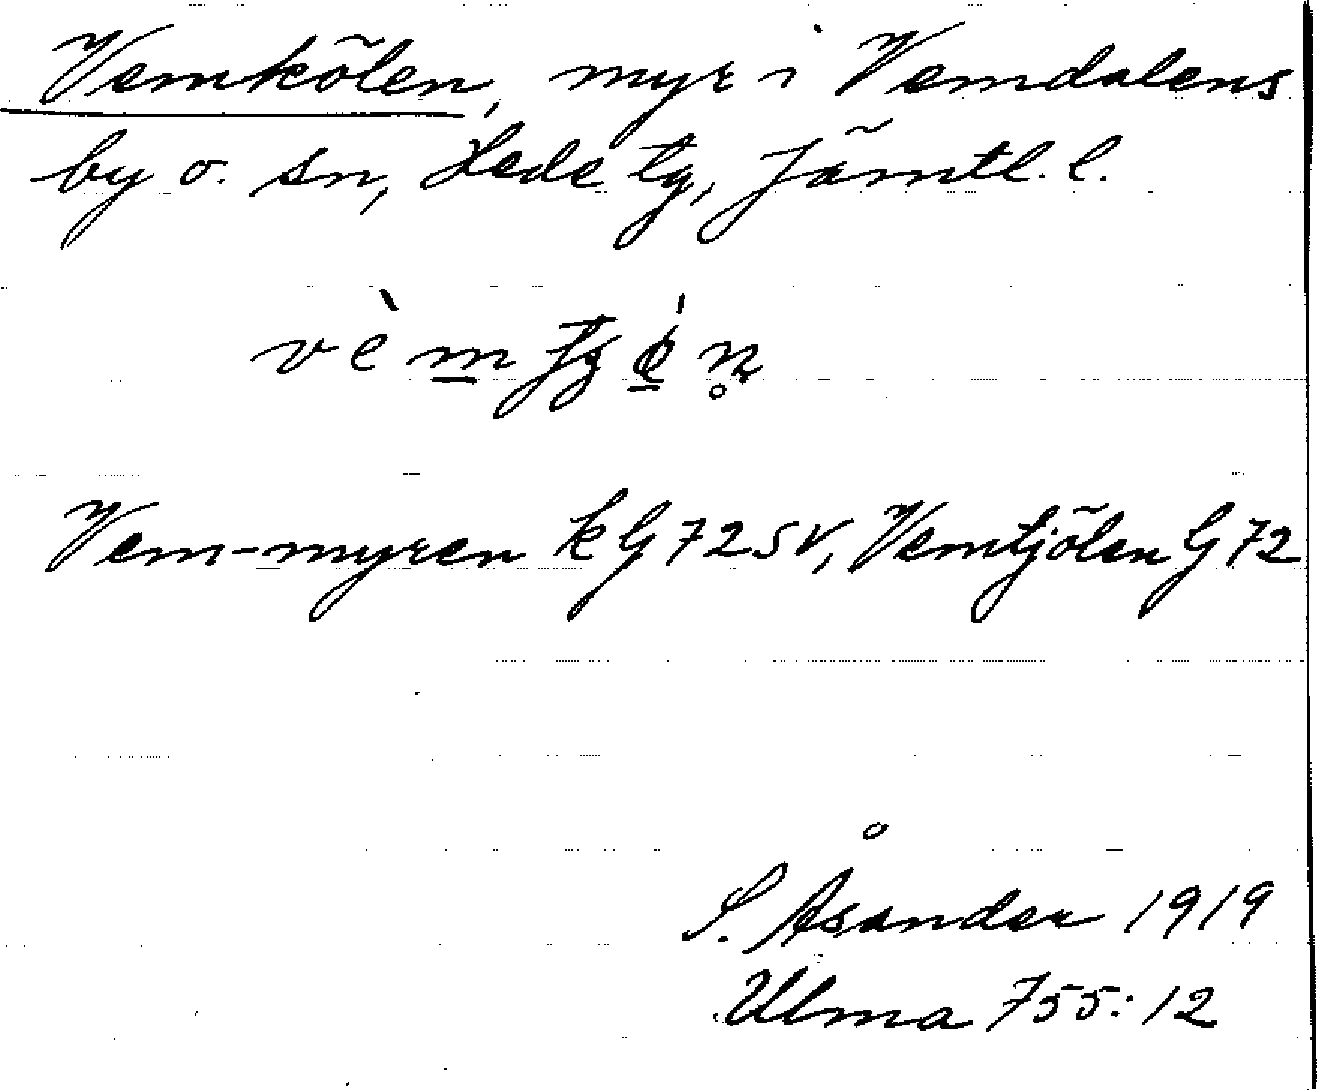 Vemkölen, myr i Vemdalens
by o. sn, Hede tg, Jämtl. l.
Vem-myren k G 72 SV, Vemtjölen G 72
S. Åsander 1919
Ulma 755:12